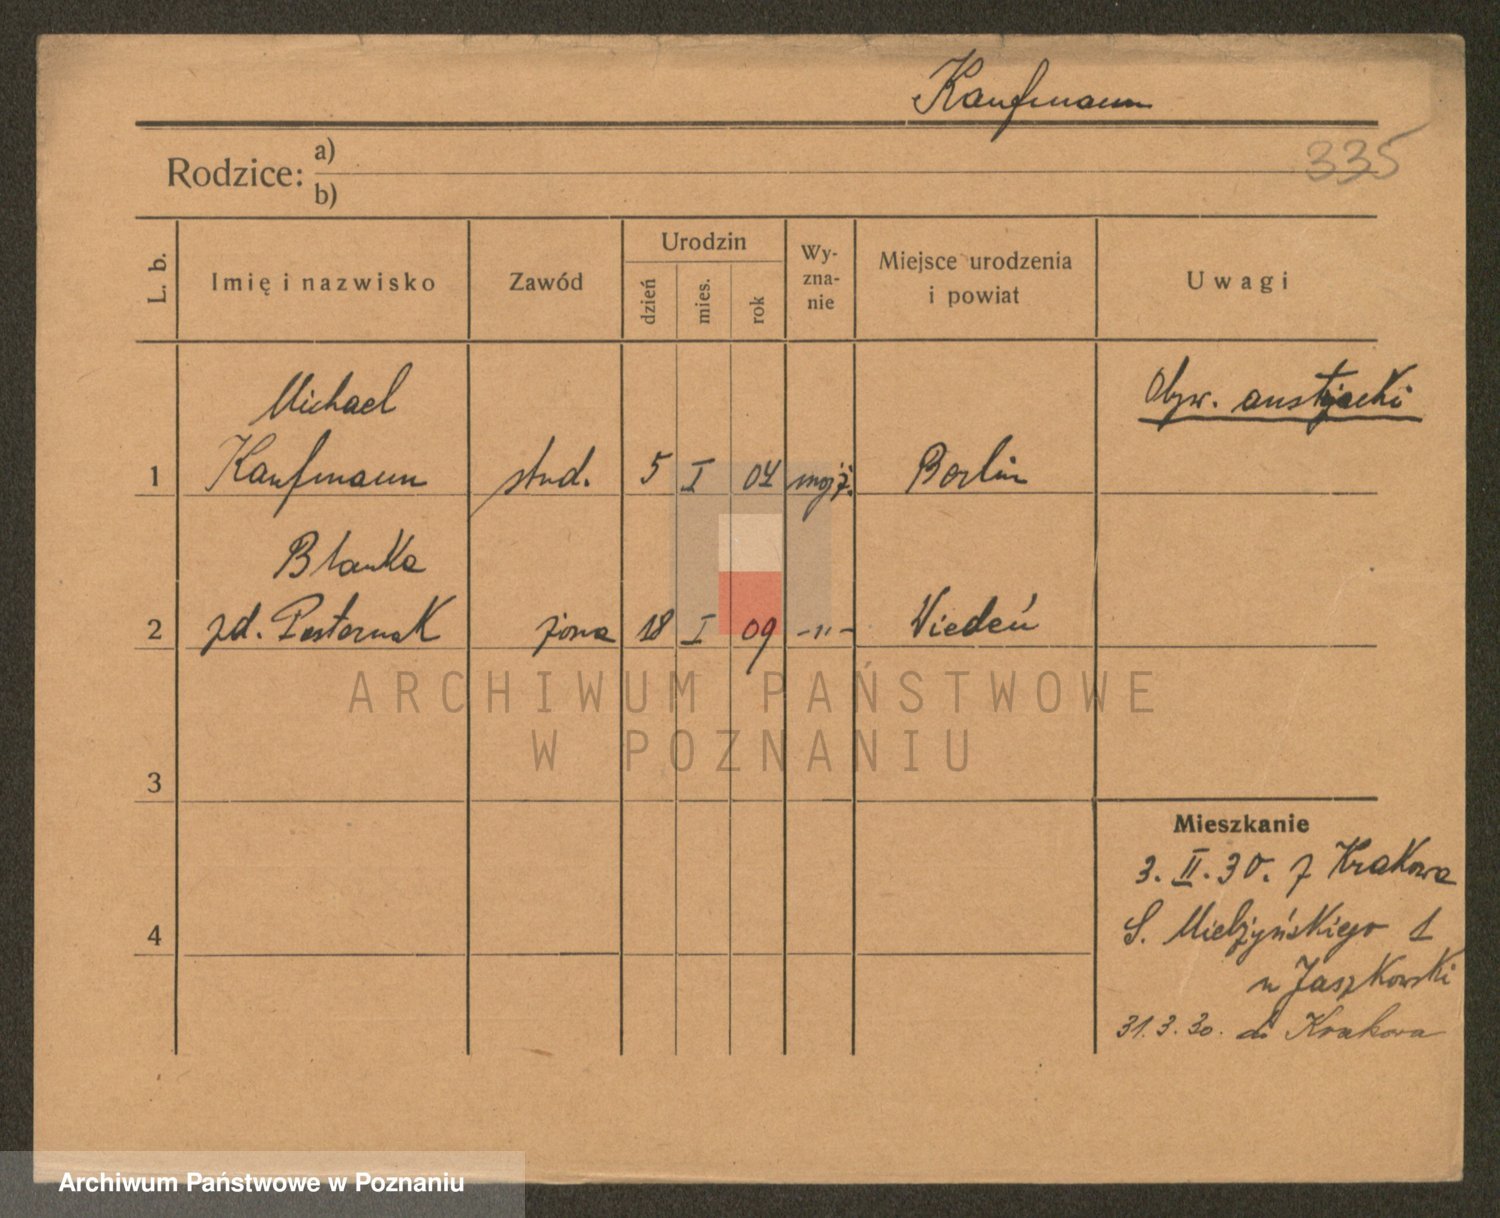 Kaufmann
335
Rodzice: a)
b)
L. b.
Imię i nazwisko
Zawód
Urodzin
dzień
mies.
rok
Wy-
zna-
nie
Miejsce urodzenia
i powiat
Uwagi
Michael
Obyw. austrjacki
1 Kaufmann stud. 5 I 04 mojż. Berlin
Blanka
2 zd. Pasternak żona 18 I 09 -"- Wiedeń
3
4
Mieszkanie
3. II. 30. z Krakowa
S. Mielżyńskiego 1
u Jaszkowski
31. 3. 30. do Krakowa
ARCHIWUM PAŃSTWOWE
W POZNANIU
Archiwum Państwowe w Poznaniu